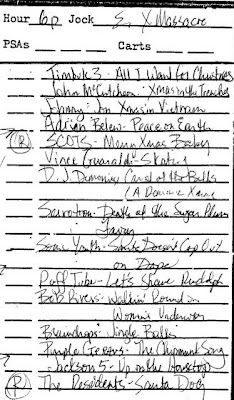 Hour 6p Jock S. XMassacre
PSAs Carts
Timbuk 3 - All I Want for Christmas
John McCutcheon - Xmas in the Trenches
Johnny: Xmas in Vietnam
Adrian Belew - Peace on Earth
R SCOTS - Merry Xmas Baby
Vince Guaraldi - Skating
D.J. Demonica Carol of the Bells
(A Demonic Xmas
Sarvation - Death of the Sugar Plum
Fairies
Sonic Youth - Santa Doesn't Cop Out
on Dope
Ruff Tube - Let's Shave Rudolph
Bob Rivers - Walkin' Round in
Women's Underwear
Braindrops - Jingle Bells
Purple Geezus - The Chipmunk Song
Jackson 5 - Up on the Housetop
R The Residents - Santa Dog